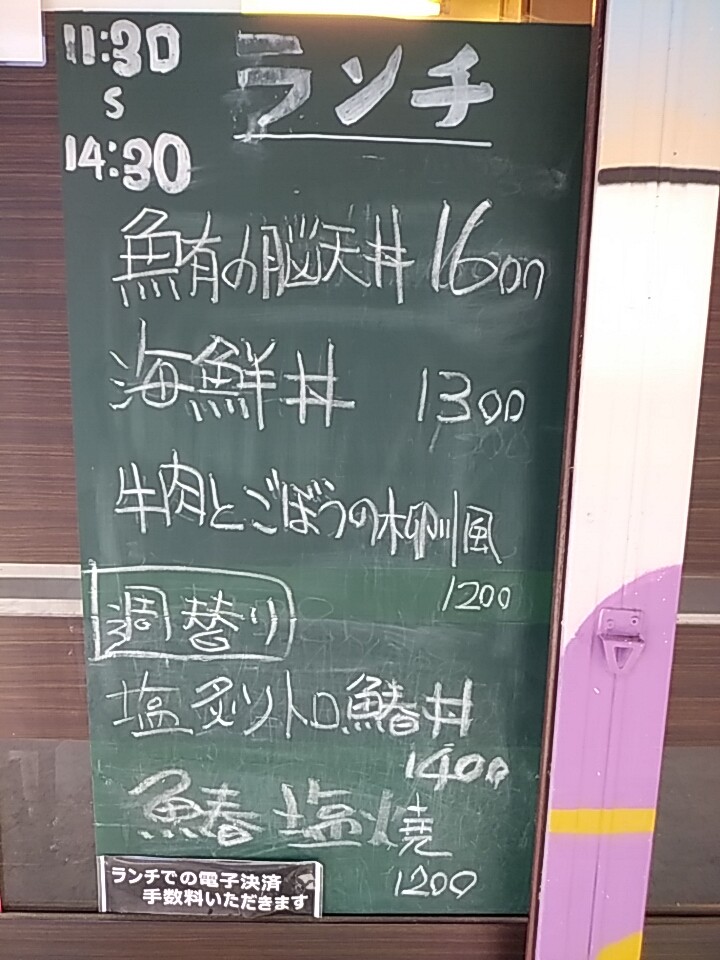 11:30
ランチ
S
14:30
鮪の脳天丼 1600
海鮮丼 1300
牛肉とごぼうの柳川風
1200
週替り
塩炙りトロ鰆丼
1400
鰆塩焼
1200
ランチでの電子決済
手数料いただきます